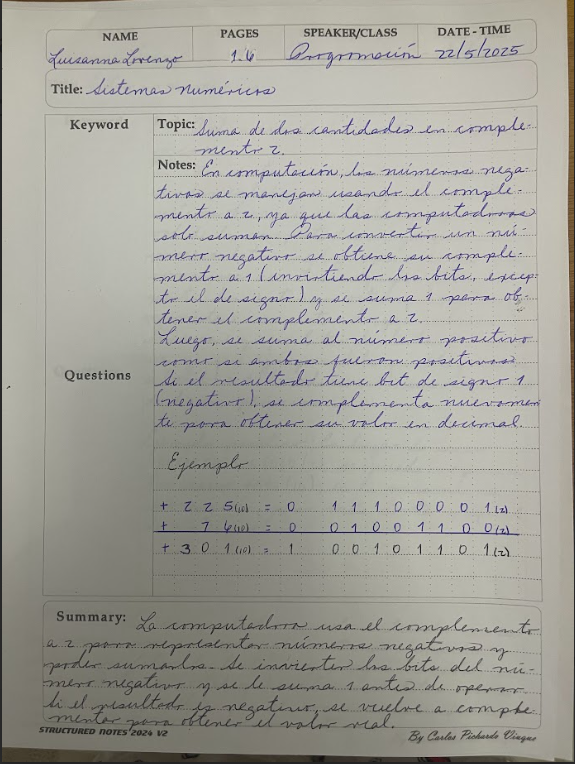 NAME PAGES SPEAKER/CLASS DATE - TIME
Luisanna Lorenzo 1.6 Programación 22/5/2025
Title: Sistemas numéricos
Keyword
Topic: Suma de dos cantidades en comple-
mento 2.
Notes: En computación, los números nega-
tivos se manejan usando el comple-
mento a 2, ya que las computadoras
solo suman. Para convertir un nú-
mero negativo se obtiene su comple-
mento a 1 (invirtiendo los bits, excep-
to el de signo) y se suma 1 para ob-
tener el complemento a 2.
Luego, se suma al número positivo
como si ambos fueran positivos.
Questions
Si el resultado tiene bit de signo 1
(negativo), se complementa nuevamen
te para obtener su valor en decimal.
Ejemplo
+ 2 2 5(10) = 0 1 1 1 0 0 0 0 1(2)
+ 7 6(10) = 0 0 1 0 0 1 1 0 0(2)
+ 3 0 1(10) = 1 0 0 1 0 1 1 0 1(2)
Summary: La computadora usa el complemento
a 2 para representar números negativos y
poder sumarlos. Se invierten los bits del nú-
mero negativo y se le suma 1 antes de operar
Si el resultado es negativo, se vuelve a comple-
mentar para obtener el valor real.
STRUCTURED NOTES 2024 V2 By Carlos Pichardo Viuque